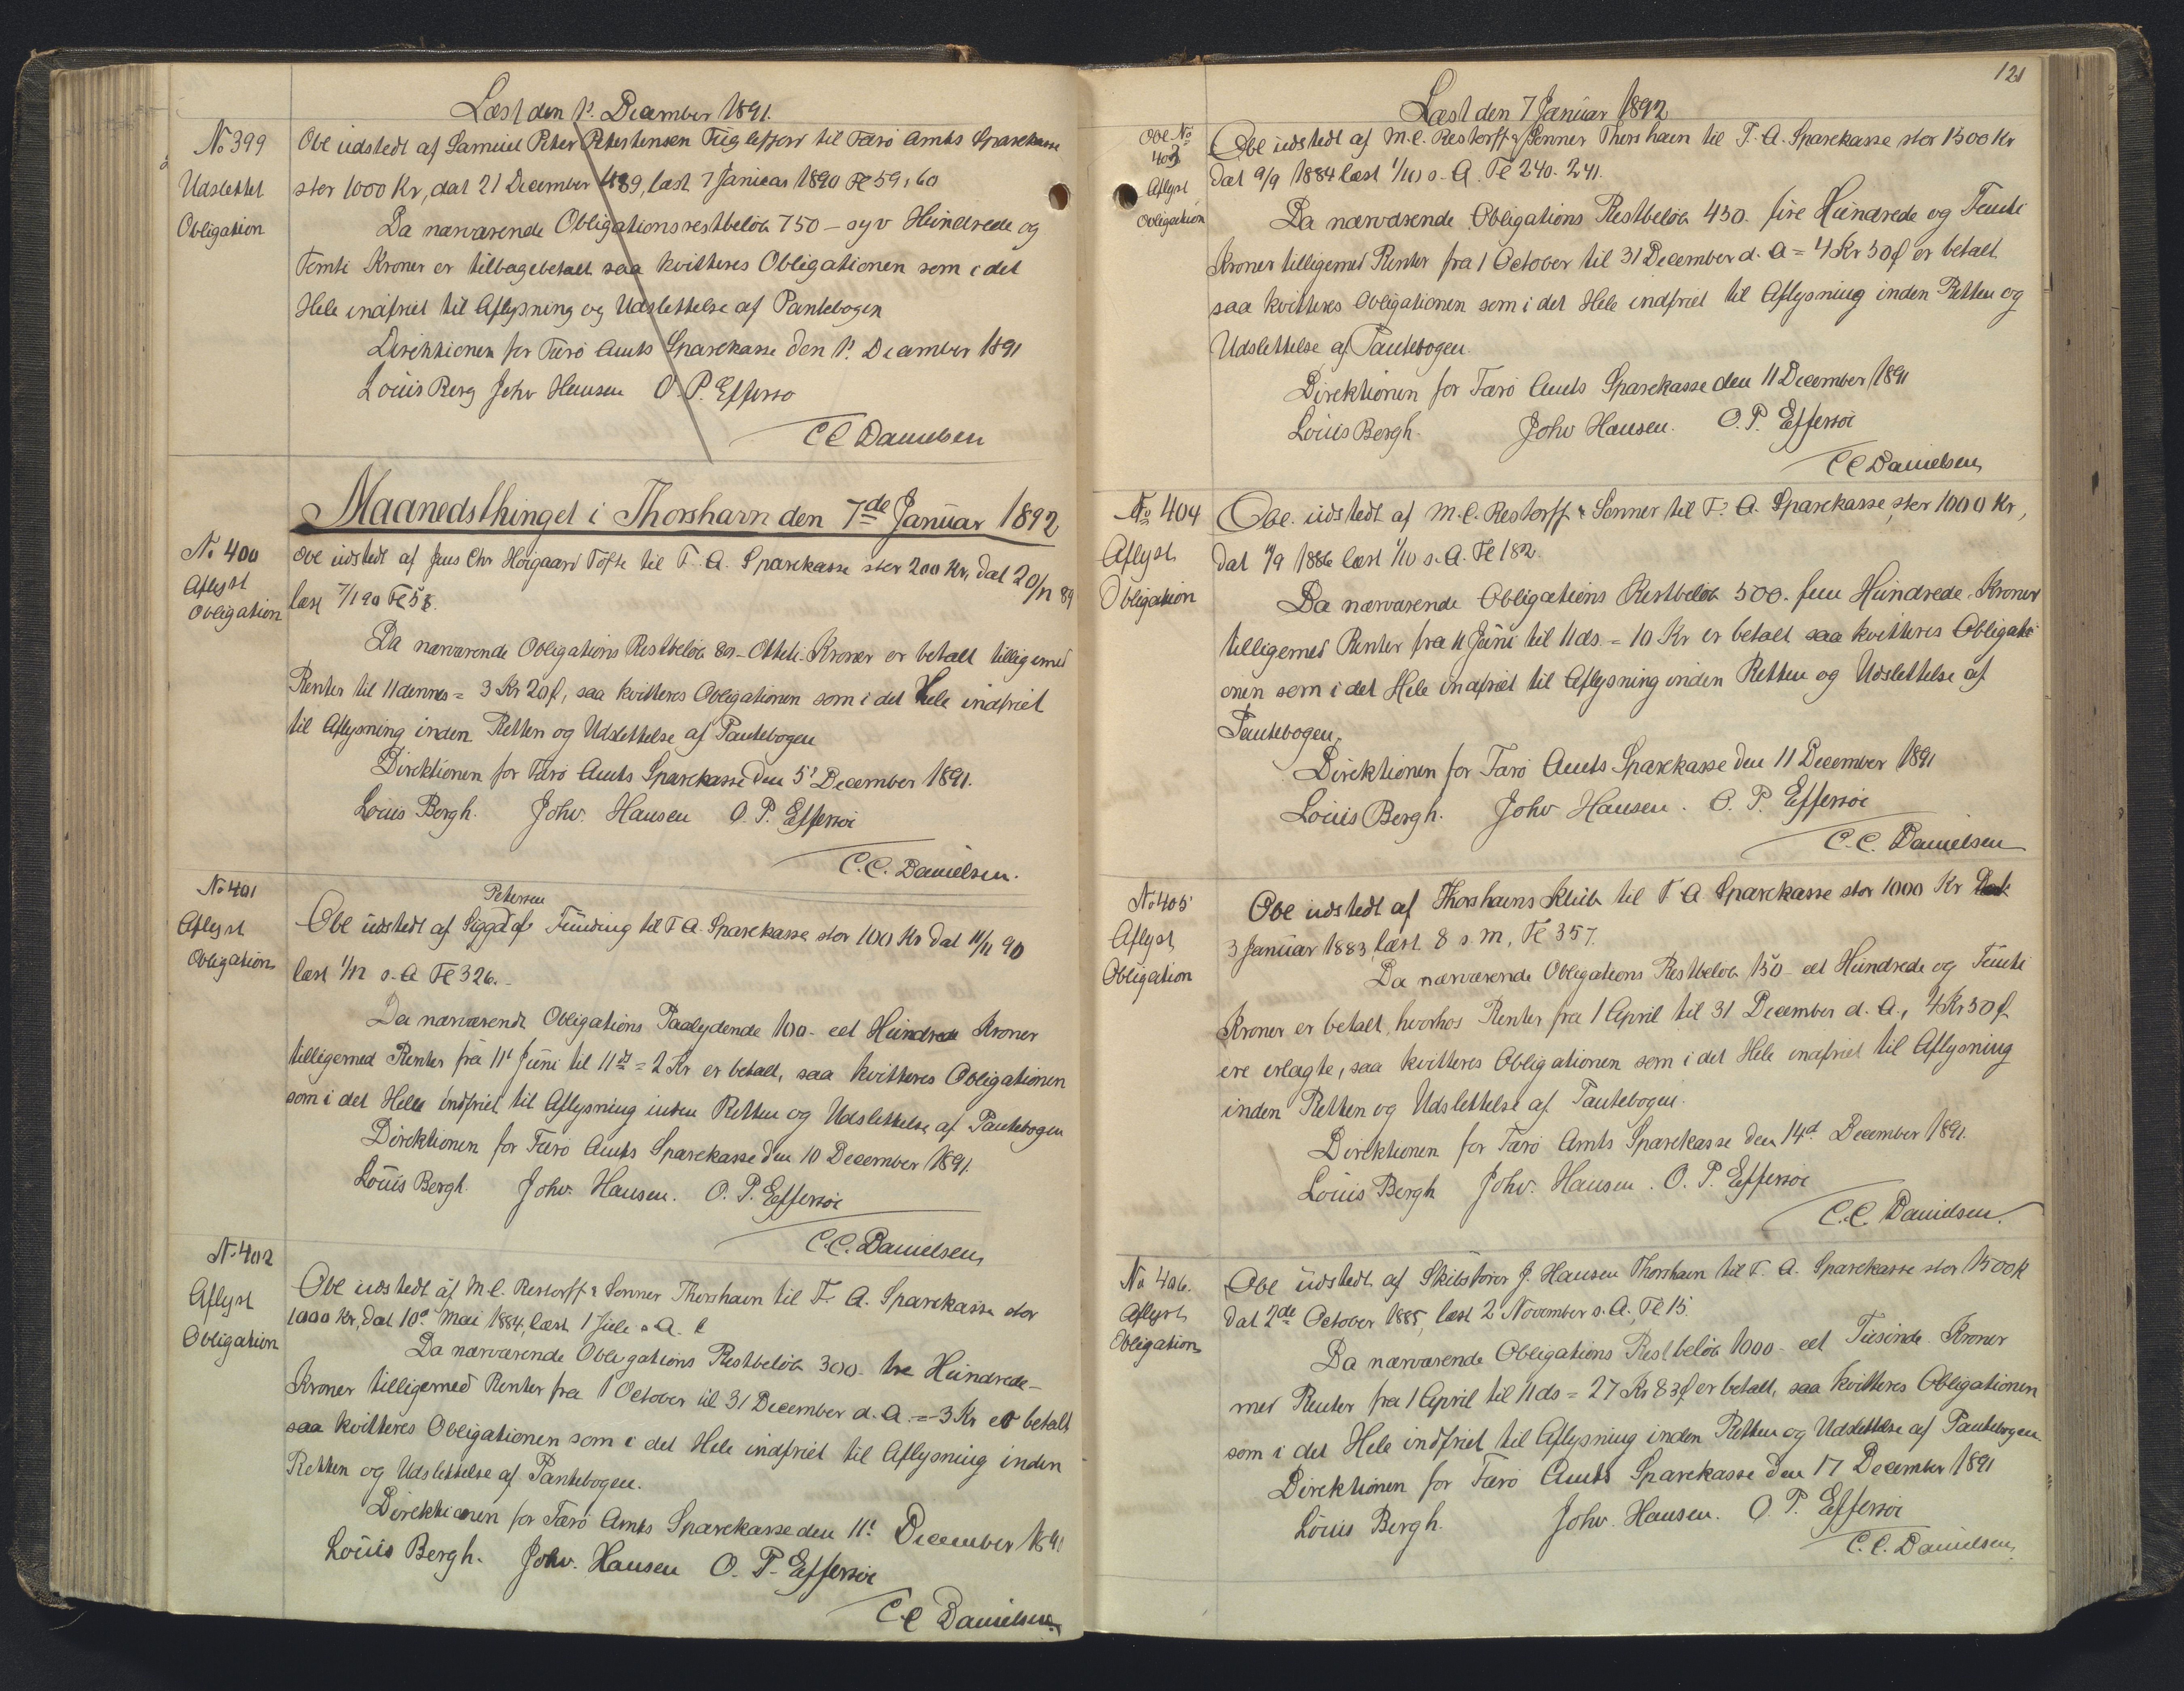 Læst den 1'. December 1891.
No 399
Udslettet
Obligation
Obl udstedt af Samuel Peter Petersen Fuglefjord til Færø Amts Sparekasse
stor 1000 Kr, dat 21 December 1889, læst 7 Januar 1890 Fl 59, 60
Da nærværende Obligationsrestbeløb 750 – syv Hundrede og
Femti Kroner er tilbagebetalt saa kvitteres Obligationen som i det
Hele indfriet til Aflysning og Udslettelse af Pantebogen
Direktionen for Færø Amts Sparekasse den 1'. December 1891
Louis Berg Johv Hansen O. P. Effersø
C C Danielsen
Maanedsthinget i Thorshavn den 7de Januar 1892
No 400
Aflyst
Obligation
Obl udstedt af Jens Chr Høigaard Tofte til F. A. Sparekasse stor 200 Kr, dat 20/12 89
læst 7/1 90 Fl 58.
Da nærværende Obligations Restbeløb 80 – Otteti – Kroner er betalt tilligemed
Renter til 11 dennes = 3 Kr 20 ø, saa kvitteres Obligationen som i det Hele indfriet
til Aflysning inden Retten og Udslettelse af Pantebogen
Direktionen for Færø Amts Sparekasse den 5' December 1891.
Louis Bergh. Johv. Hansen O. P. Effersøe
C. C. Danielsen.
No 401
Aflyst
Obligation
Petersen
Obl udstedt af Funding til F A. Sparekasse stor 100 Kr dat 11/11 90
læst 1/12 s. A Fl 326.–
Da nærværende Obligations Paalydende 100 – eet Hundrede Kroner
tilligemed Renter fra 11' Juni til 11 ds = 2 Kr er betalt, saa kvitteres Obligationen
som i det Hele indfriet til Aflysning inden Retten og Udslettelse af Pantebogen
Direktionen for Færø Amts Sparekasse den 10 December 1891.
Louis Bergh. Johv. Hansen. O. P. Effersøe
C. C. Danielsen
No 402
Aflyst
Obligation
Obl udstedt af M C. Restorff & Sønner Thorshavn til F. A. Sparekasse stor
1000 Kr, dat 10d Mai 1884, læst 1 Juli s. A.
Da nærværende Obligations Restbeløb 300 – tre Hundrede –
Kroner tilligemed Renter fra 1 October til 31 December d. A. = 3 Kr er betalt
saa kvitteres Obligationen som i det Hele indfriet til Aflysning inden
Retten og Udslettelse af Pantebogen.
Direktionen for Færø Amts Sparekasse den 11' December 1891
Louis Bergh. Johv. Hansen O. P. Effersøe
C. C Danielsen
121
Læst den 7 Januar 1892
Obl No
403
Aflyst
Obligation
Obl udstedt af M. C. Restorff & Sønner Thorshavn til F. A. Sparekasse stor 1500 Kr
dat 9/9 1884 læst 1/10 s. A. Fl 240. 241.
Da nærværende Obligations Restbeløb 450. fire Hundrede og Femti
Kroner tilligemed Renter fra 1 October til 31 December d. A = 4 Kr 50 ø er betalt
saa kvitteres Obligationen som i det Hele indfriet til Aflysning inden Retten og
Udslettelse af Pantebogen.
Direktionen for Færø Amts Sparekasse den 11 December 1891
Louis Bergh. Johv Hansen. O. P. Effersøe
C C Danielsen
No 404
Aflyst
Obligation
Obl. udstedt af M. C. Restorff & Sønner til F. A. Sparekasse stor 1000 Kr,
dat /9 1886 læst 1/10 s. A. Fl 182.
Da nærværende Obligations Restbeløb 500. fem Hundrede Kroner
tilligemed Renter fra 11 Juni til 11 ds. = 10 Kr er betalt saa kvitteres Obligati
onen som i det Hele indfriet til Aflysning inden Retten og Udslettelse af
Pantebogen.
Direktionen for Færø Amts Sparekasse den 11 December 1891
Louis Bergh. Johv Hansen. O. P. Effersøe
C. C. Danielsen
No 405
Aflyst
Obligation
Obl udstedt af Thorshavns Klub til F. A Sparekasse stor 1000 Kr Dat
3 Januar 1883, læst 8 s. M, Fl 357.
Da nærværende Obligations Restbeløb 150 – eet Hundrede og Femti
Kroner er betalt, hvorhos Renter fra 1 April til 31 December d. A., 4 Kr 50 ø
ere erlagte, saa kvitteres Obligationen som i det Hele indfriet til Aflysning
inden Retten og Udslettelse af Pantebogen.
Direktionen for Færø Amts Sparekasse den 14d December 1891.
Louis Bergh Johv. Hansen. O. P. Effersøe
C. C. Danielsen.
No 406.
Aflyst
Obligation
Obl udstedt af Skibsfører J. Hansen Thorshavn til F. A. Sparekasse stor 1500 K
dat 2de October 1885, læst 2 November s. A., Fl 15.
Da nærværende Obligations Restbeløb 1000 – eet Tusinde – Kroner
med Renter fra 1 April til 11 ds = 27 Kr 83 ø er betalt, saa kvitteres Obligationen
som i det Hele indfriet til Aflysning inden Retten og Udslettelse af Pantebogen.
Direktionen for Færø Amts Sparekasse den 17 December 1891
Louis Bergh. Johv. Hansen. O. P. Effersøe
C. C. Danielsen.